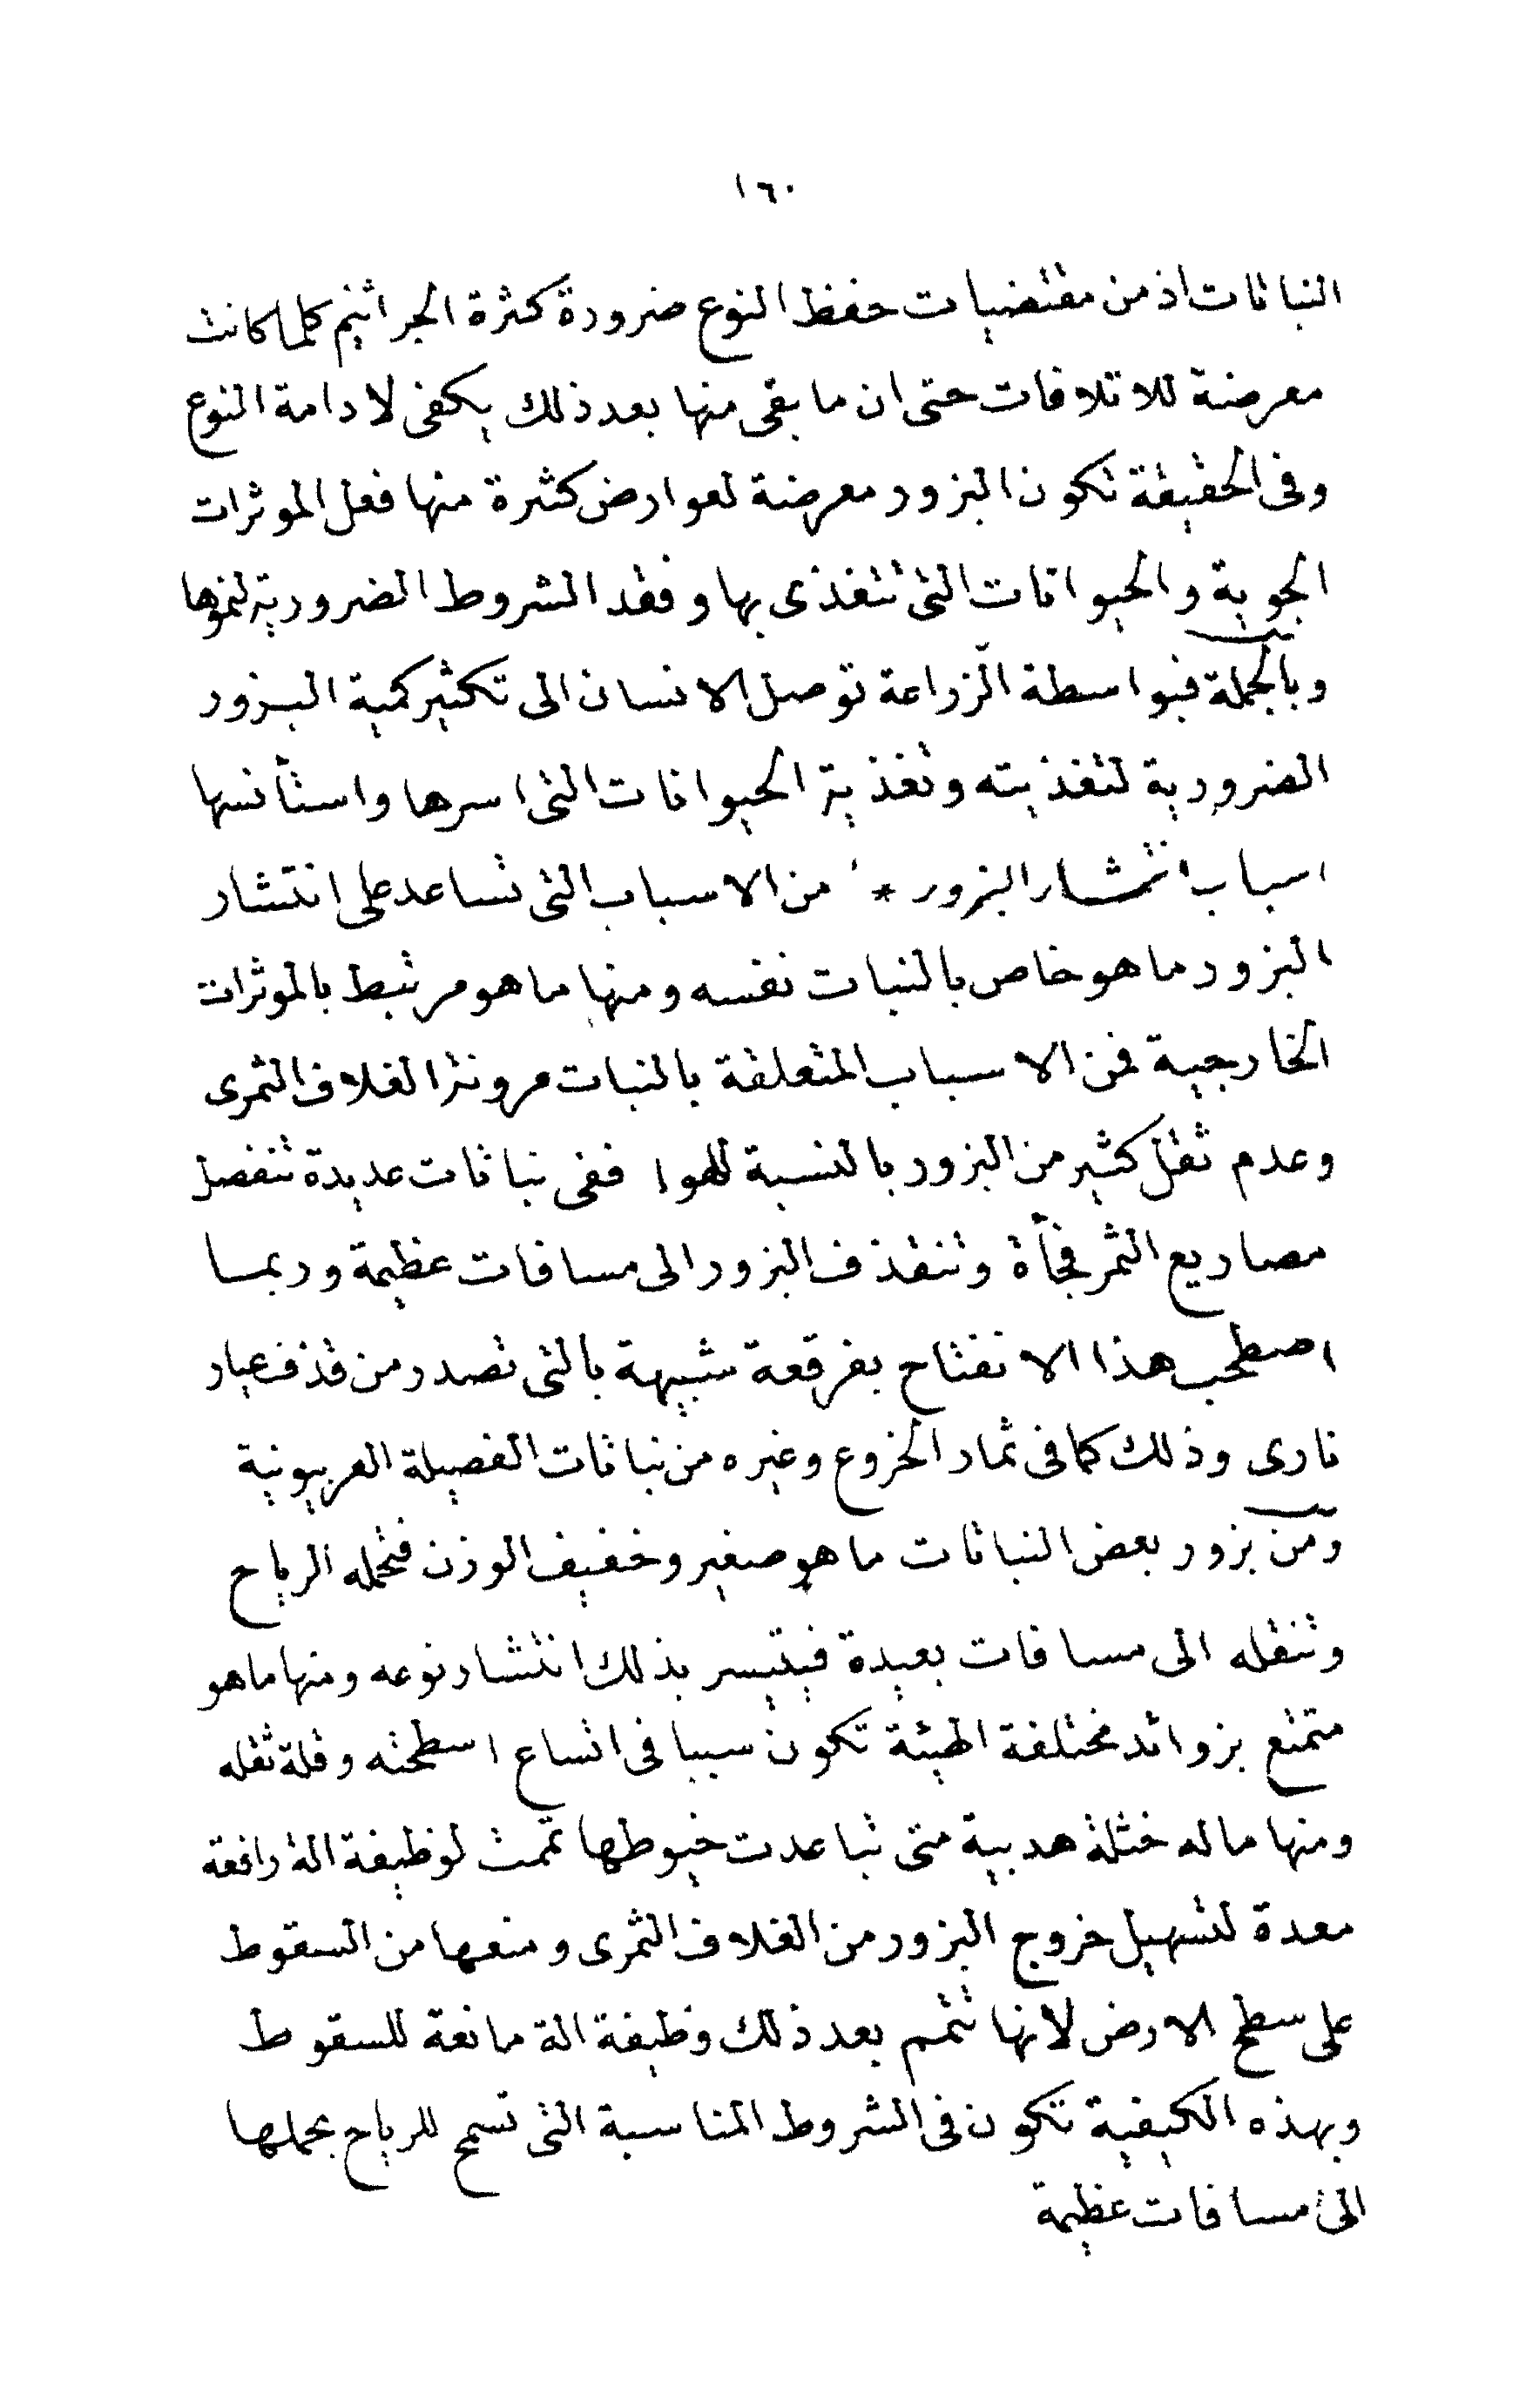 ١٦٠
النباتات اذ من مقتضيات حفظ النوع ضرورة كثرة الجراثيم كلما كانت
معرضة للاتلافات حتى ان ما بقى منها بعد ذلك يكفى لادامة النوع
وفى الحقيقة تكون البزور معرضة لعوارض كثيرة منها فعل الموثرات
الجوية والحيوانات التى تتغذى بها وفقد الشروط الضرورية لنموها
وبالجملة فبواسطة الزراعة توصل الانسان الى تكثير كمية البزور
الضرورية لتغذيته وتغذية الحيوانات التى اسرها واستأنسها
اسباب انتشار البزور * من الاسباب التى تساعد على انتشار
البزور ما هو خاص بالنبات نفسه ومنها ما هو مرتبط بالموثرات
الخارجية فمن الاسباب المتعلقة بالنبات مرونة الغلاف الثمرى
وعدم ثقل كثير من البزور بالنسبة للهوا ففى نباتات عديدة تنفصل
مصاريع الثمر فجأة وتنقذف البزور الى مسافات عظيمة وربما
اصطحب هذا الانفتاح بفرقعة شبيهة بالتى تصدر من قذف عيار
نارى وذلك كما فى ثمار الخروع وغيره من نباتات الفصيلة الفربيونية
ومن بزور بعض النباتات ما هو صغير وخفيف الوزن فتحمله الرياح
وتنقله الى مسافات بعيدة فيتيسر بذلك انتشار نوعه ومنها ما هو
متمتع بزوائد مختلفة الهيئة تكون سببا فى اتساع اسطحته وقلة ثقله
ومنها ماله خثلة هدبية متى تباعدت خيوطها تممت لوظيفة الة رافعة
معدة لتسهيل خروج البزور من الغلاف الثمرى ومنعها من السقوط
على سطح الارض لانها تتمم بعد ذلك وظيفة الة مانعة للسقوط
وبهذه الكيفية تكون فى الشروط المناسبة التى تسمح للرياح بحملها
الى مسافات عظيمة